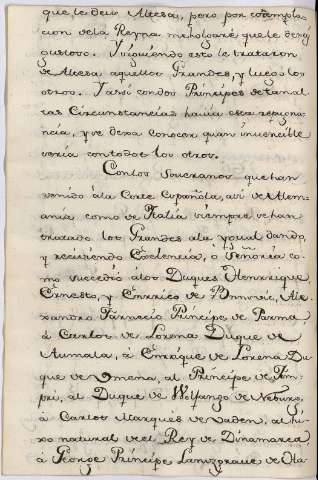 que, le deis Altesa, pero por contempla-
cion de la Reyna me holgaré que le deis,
gustoso. Y siguiendo esto le trataron
de Altesa aquellos Grandes, y luego los
otros. Y assi con dos Príncipes de tan al-
tas Circunstancias havia esta repugna-
ncia, y se dexa conocer quan invencible
seria con todos los otros.
Con los Soveranos que han
venido à la Corte Española, assi de Alem-
ania como de Italia siempre se han
tratado los Grandes a la ygualdando,
y recibiendo Excelencia, ò Señoria co-
mo succediò à los Duques Henrrique
Ernesto, y Enrrico de Brunsvic, Ale-
xandro Farnecio Príncipe de Parma
à Carlos de Lorena Duque de
Aumala, à Enrique de Lorena Du-
que de Umena, al Príncipe de
al Duque de Wolfango de Neburg,
à Carlos Marquès de Baden, al hi-
xo natural del Rey de Dinamarca
à George Príncipe Lantzgrave de